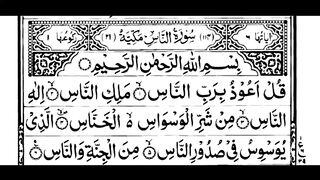 اٰیاتھا ۶ سُوْرَةُ النَّاسِ مَكِّيَّةٌ (۲۱) رکوعھا ۱
بِسْمِ اللّٰهِ الرَّحْمٰنِ الرَّحِيْمِ
قُلْ اَعُوْذُ بِرَبِّ النَّاسِ مَلِكِ النَّاسِ اِلٰهِ
النَّاسِ مِنْ شَرِّ الْوَسْوَاسِ الْخَنَّاسِ الَّذِيْ
يُوَسْوِسُ فِيْ صُدُوْرِ النَّاسِ مِنَ الْجِنَّةِ وَالنَّاسِ